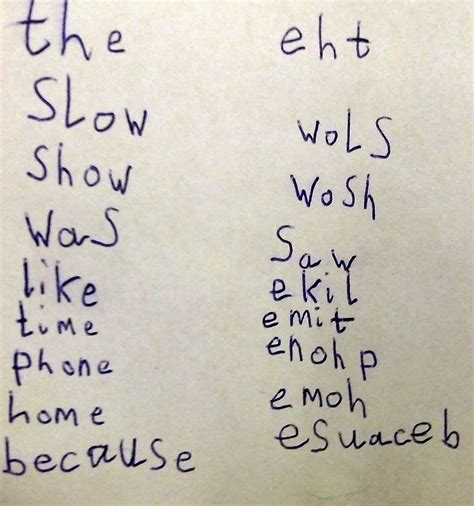 the eht
SLow woLS
Show woSh
WaS Saw
like ekil
time emit
phone enohp
home emoh
because esuaceb